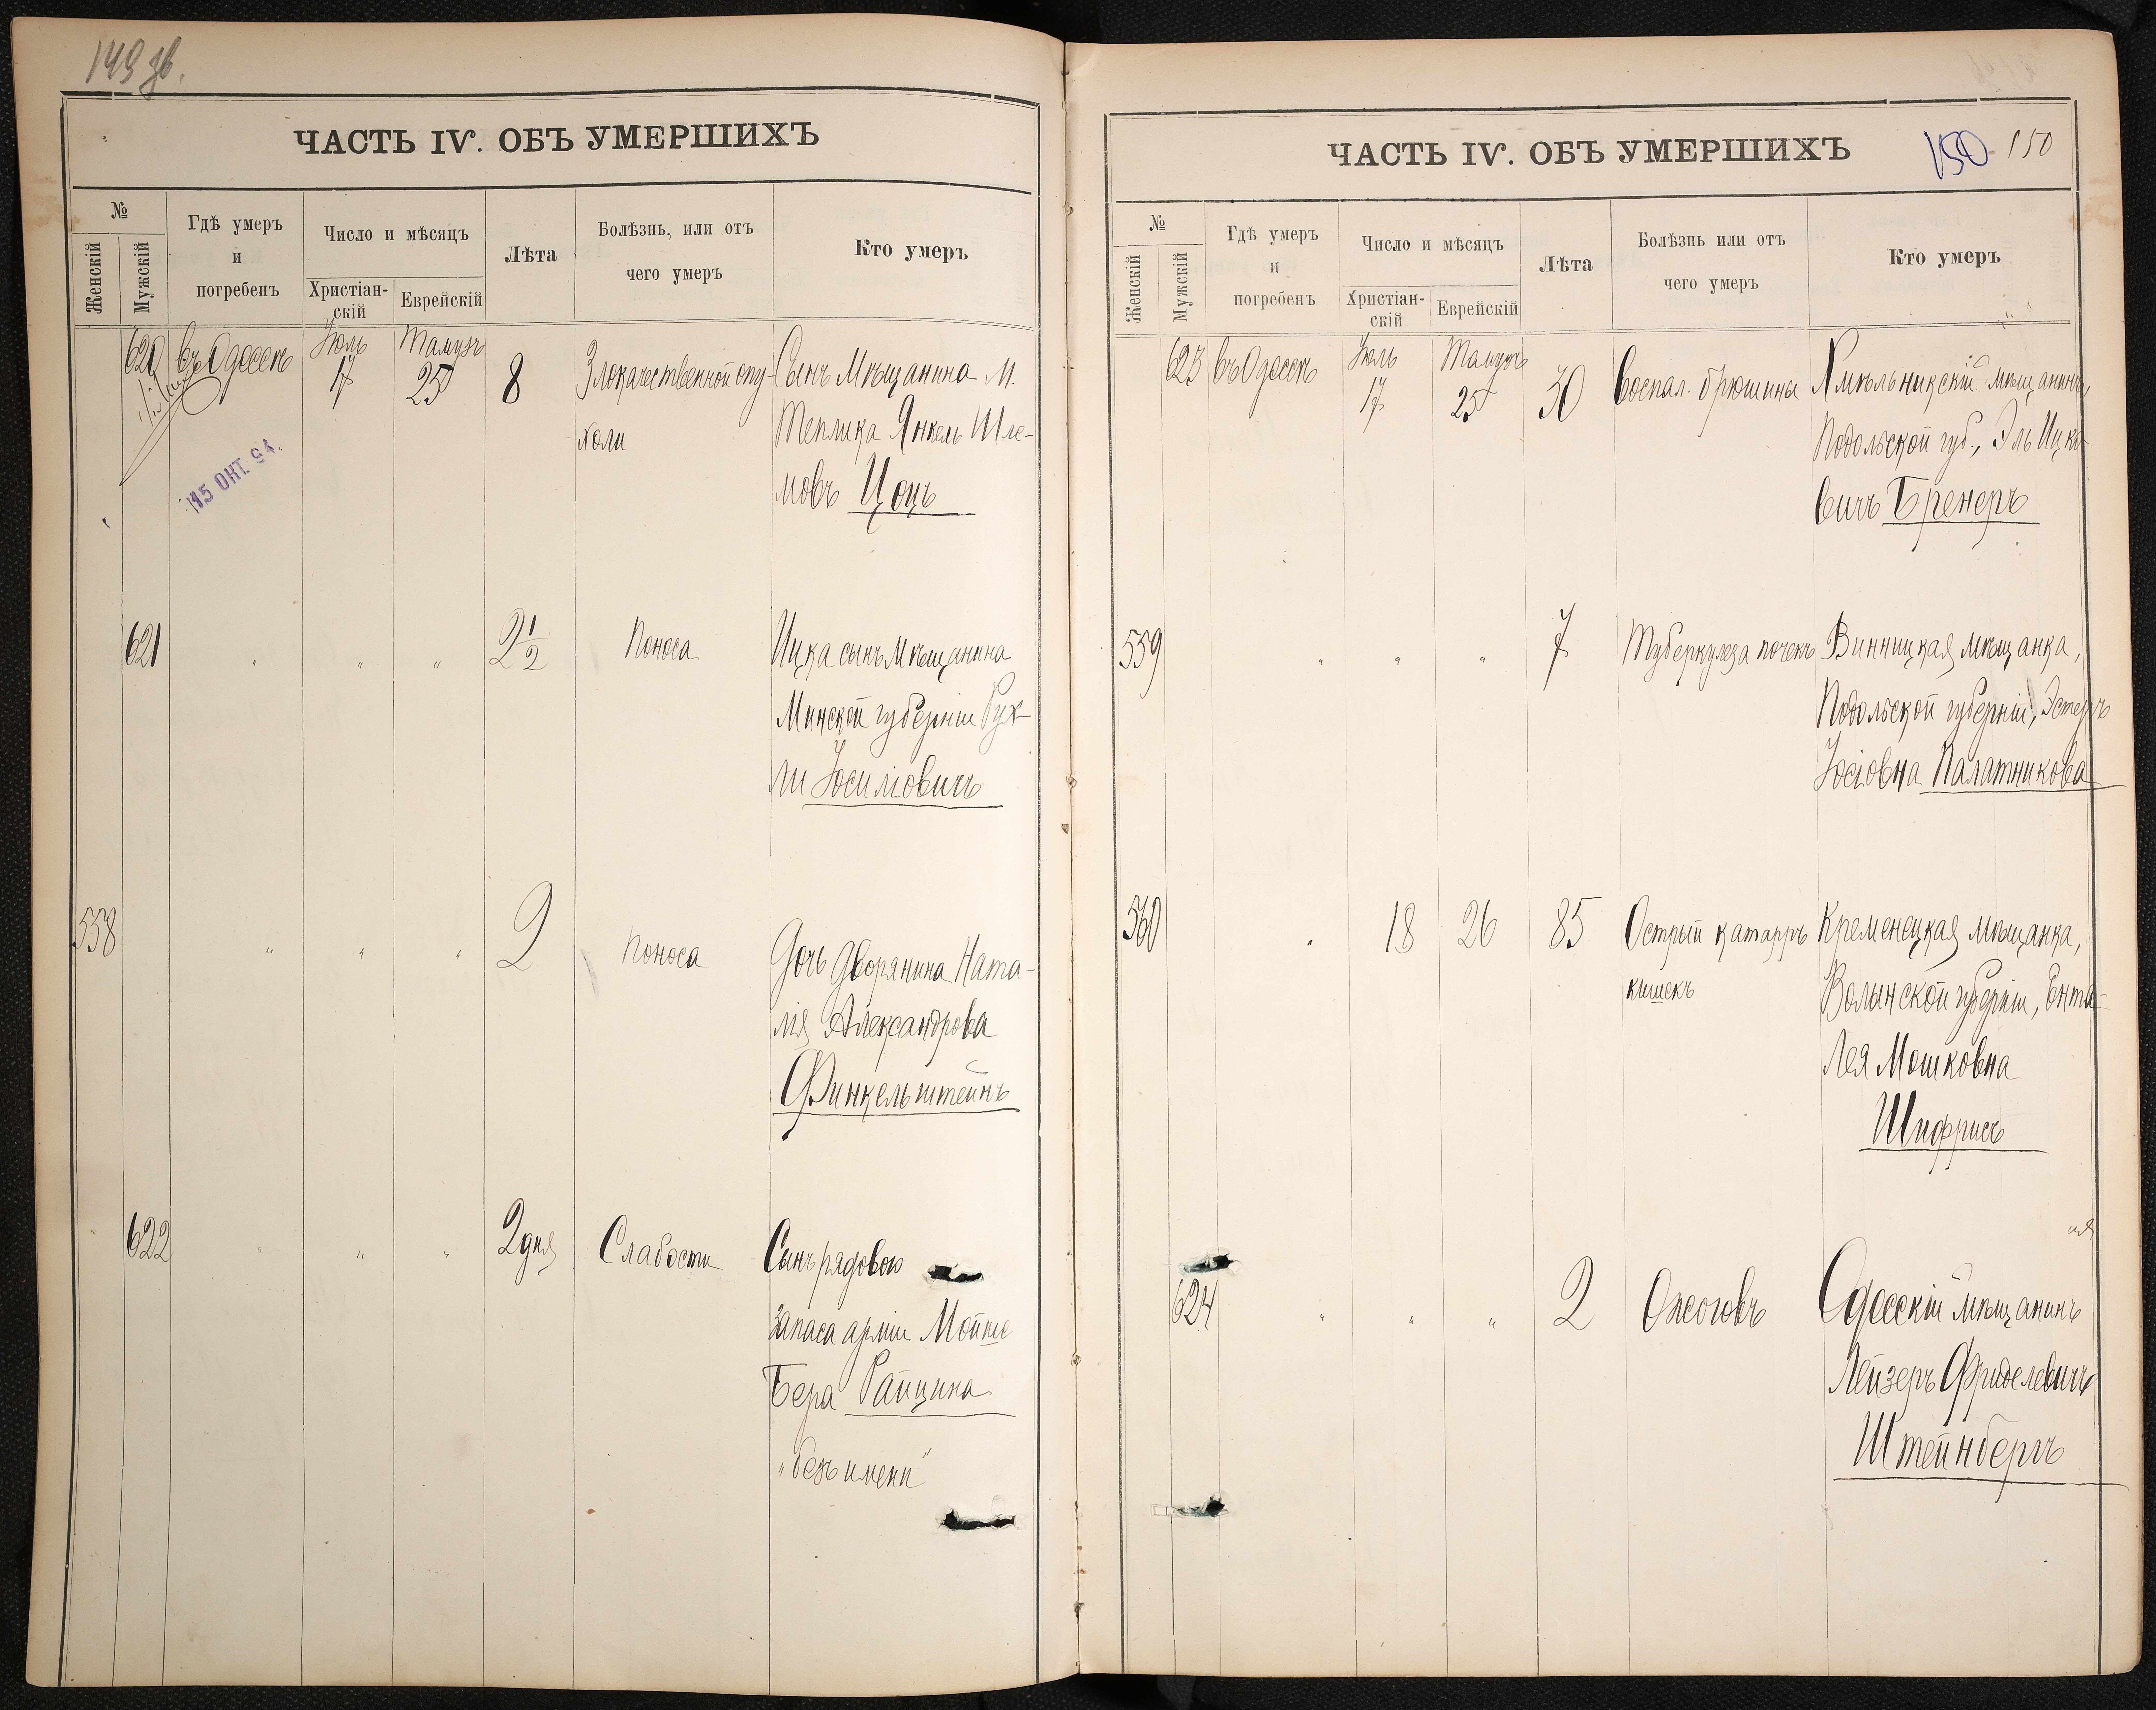 149 зв.
ЧАСТЬ IV. ОБЪ УМЕРШИХЪ
№
Женскій
Мужскій
Гдѣ умеръ
и
погребенъ
Число и мѣсяцъ
Христіан-
скій
Еврейскій
Лѣта
Болѣзнь, или отъ
чего умеръ
Кто умеръ
620
въ Одессѣ
Іюль
17
Тамузъ
25
8
Злокачественной опу-
холи
Сынъ Мѣщанина М.
Теплика Янкель Шле-
мовъ Цоцъ
15 ОКТ. 94.
621
" " "
2 1/2
Поноса
Ицка сынъ Мѣщанина
Минской губерніи Рух-
ли Іосимовичъ
558
" " "
2
Поноса
Дочь Дворянина Ната-
лія Александрова
Финкельштейнъ
622
" " "
2 дня
Слабости
Сынъ рядового
запаса арміи Мойше
Бера Райцина
"безъ имени"
ЧАСТЬ IV. ОБЪ УМЕРШИХЪ
150 150
№
Женскій
Мужскій
Гдѣ умеръ
и
погребенъ
Число и мѣсяцъ
Христіан-
скій
Еврейскій
Лѣта
Болѣзнь или отъ
чего умеръ
Кто умеръ
623
въ Одессѣ
Іюль
17
Тамузъ
25
30
Воспал. брюшины
Хмѣльникскій мѣщанинъ,
Подольской губ., Эль Ицко-
вичъ Бренеръ
559
" " "
7
Туберкулеза почекъ
Винницкая мѣщанка,
Подольской губерніи, Эстеръ
Іосіовна Палатникова
560
"
18
26
85
Острый катарръ
кишекъ
Кременецкая мѣщанка,
Волынской губерніи, Ента-
Лея Мошковна
Шифрисъ
624
" " "
2
Ожоговъ
Одесскій мѣщанинъ
Лейзеръ Фриделевичъ
Штейнбергъ